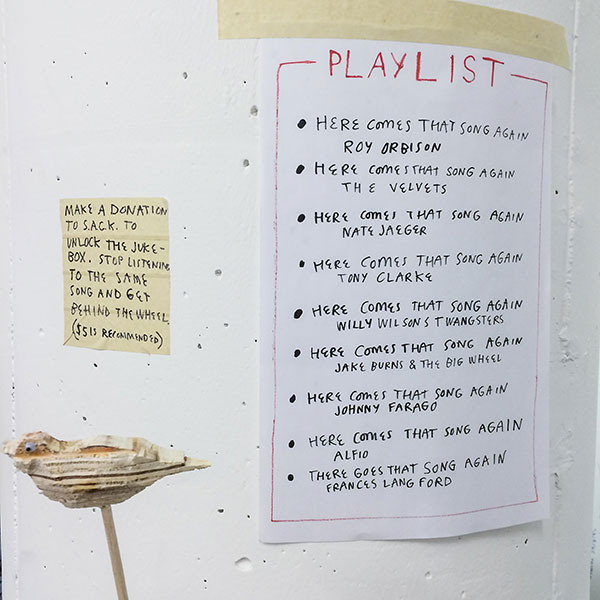 PLAYLIST
• HERE COMES THAT SONG AGAIN
ROY ORBISON
• HERE COMES THAT SONG AGAIN
THE VELVETS
• HERE COMES THAT SONG AGAIN
NATE JAEGER
• HERE COMES THAT SONG AGAIN
TONY CLARKE
• HERE COMES THAT SONG AGAIN
WILLY WILSON'S TWANGSTERS
• HERE COMES THAT SONG AGAIN
JAKE BURNS & THE BIG WHEEL
• HERE COMES THAT SONG AGAIN
JOHNNY FARAGO
• HERE COMES THAT SONG AGAIN
ALFIO
• THERE GOES THAT SONG AGAIN
FRANCES LANGFORD
MAKE A DONATION
TO S.A.C.K. TO
UNLOCK THE JUKE-
BOX. STOP LISTENING
TO THE SAME
SONG AND GET
BEHIND THE WHEEL.
($5 IS RECOMMENDED)